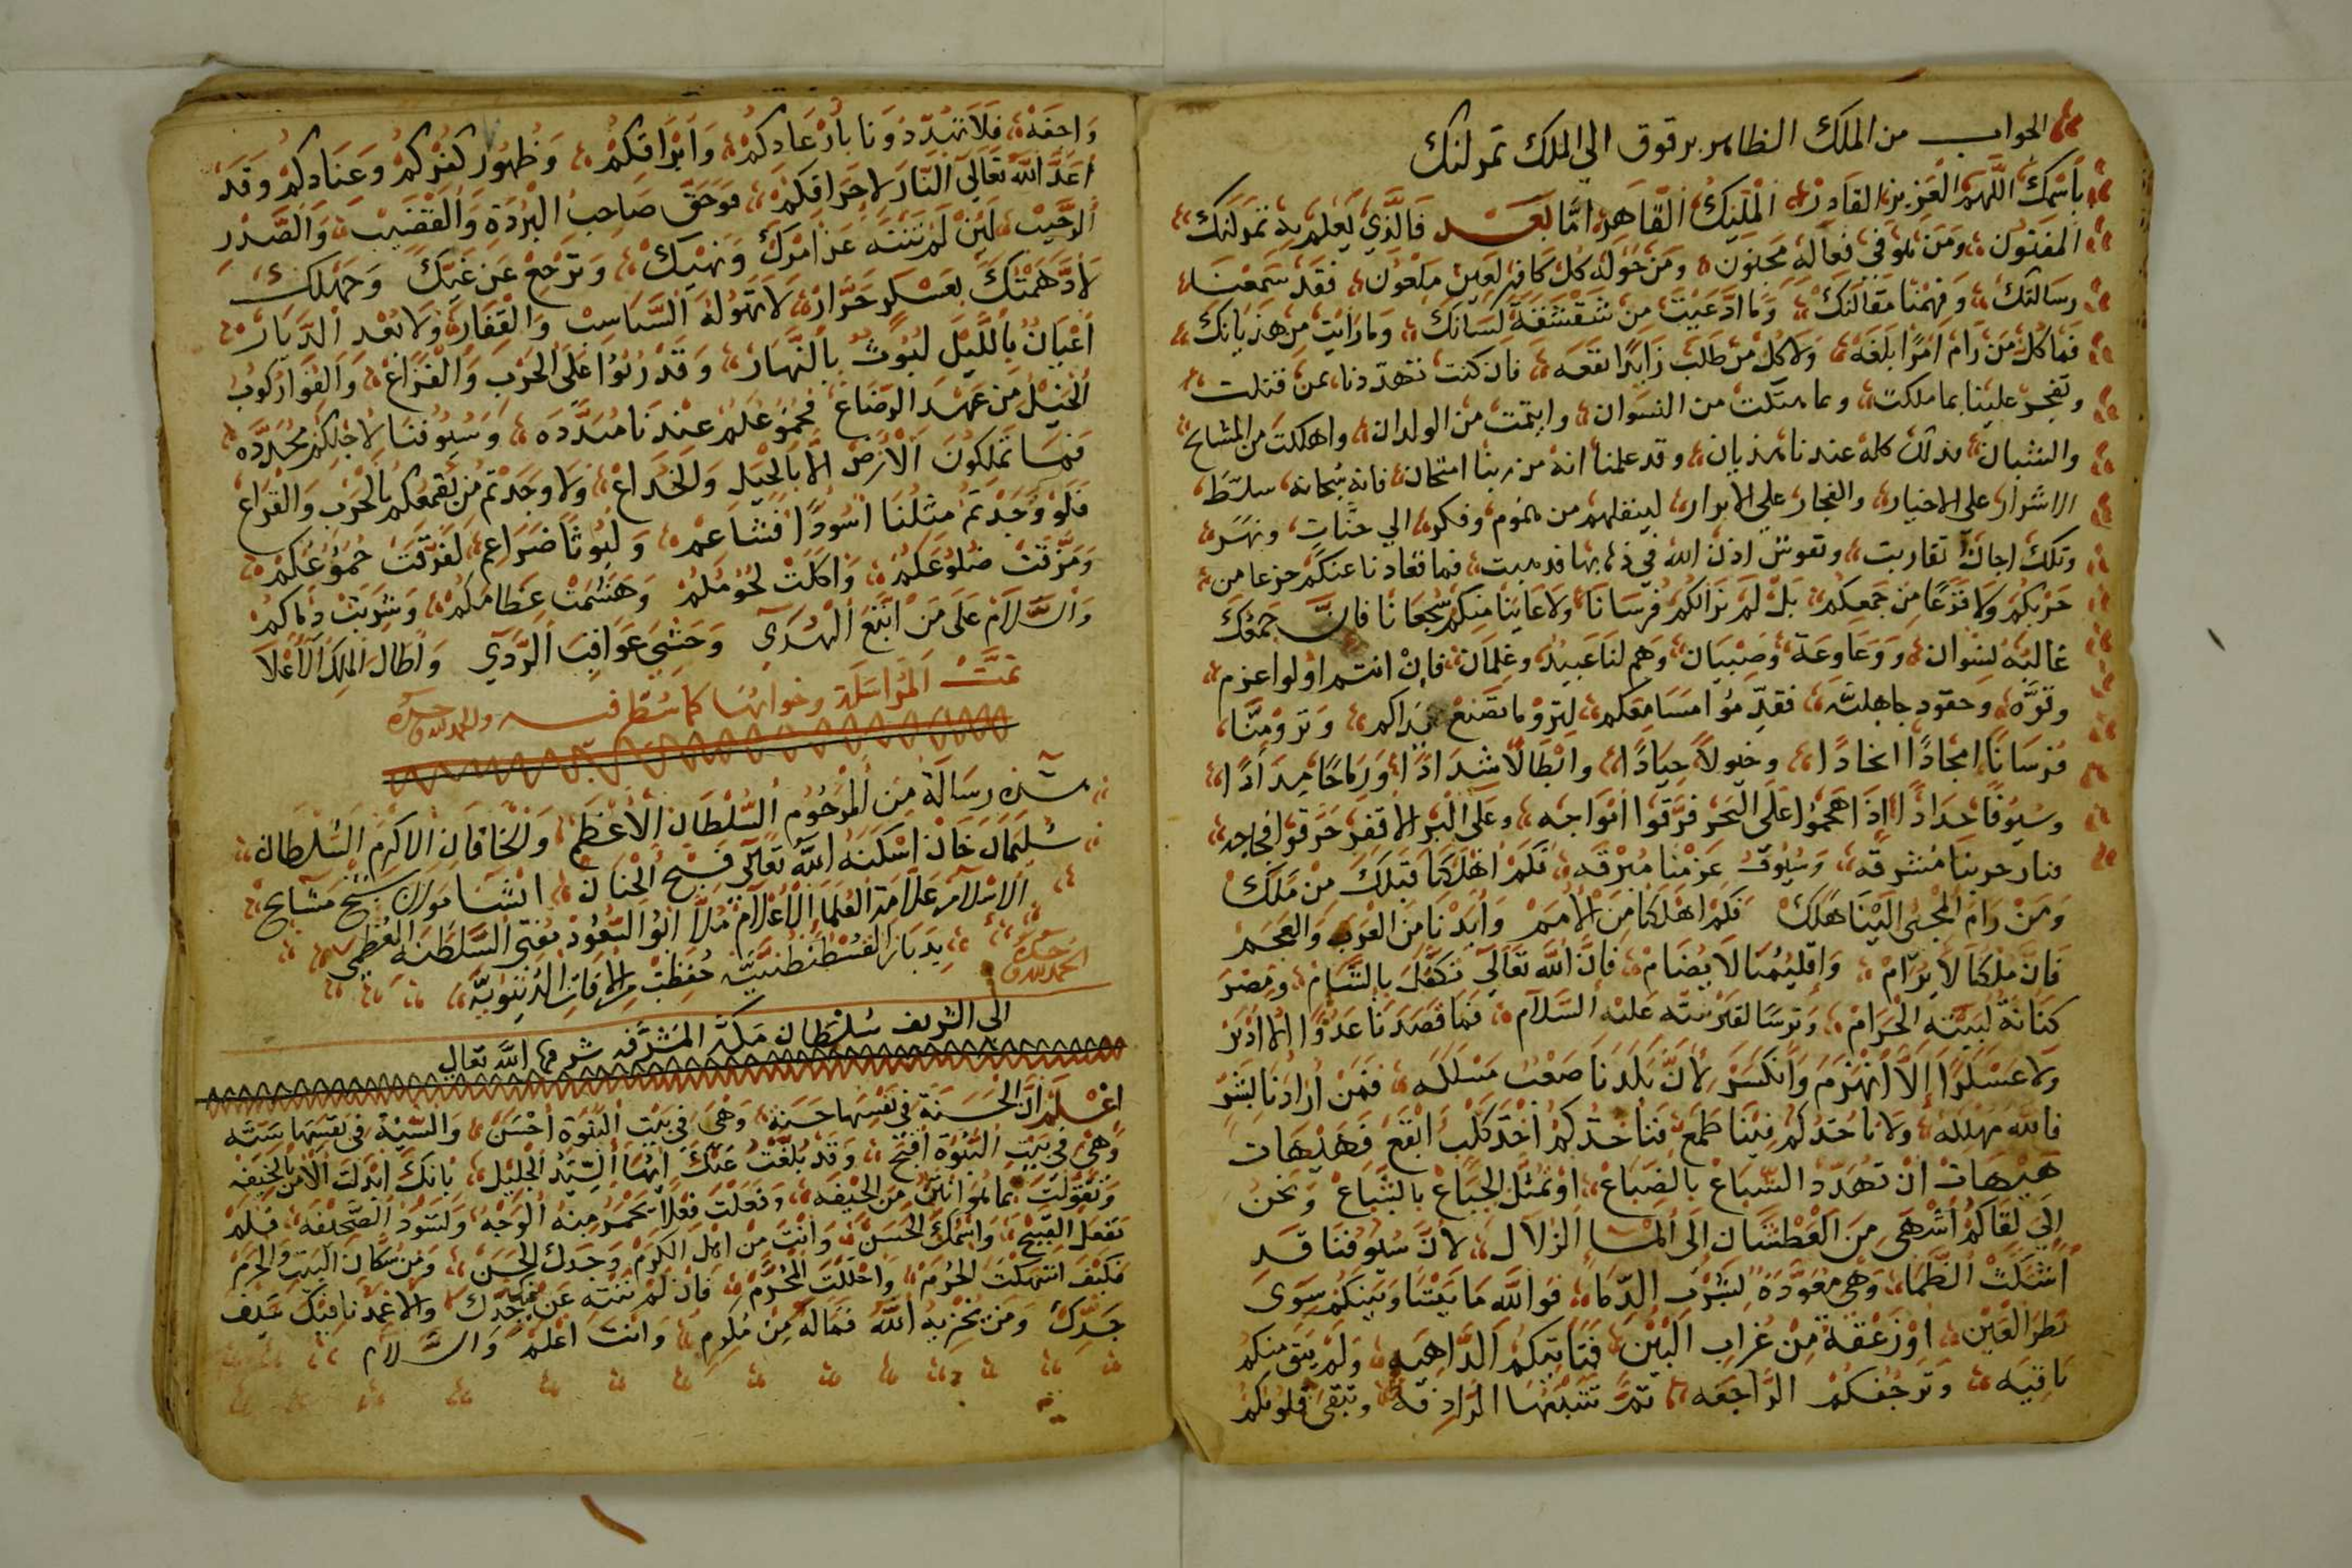 الجواب من الملك الظاهر برقوق الى الملك تمرلنك
باسمك اللهم العزيز القادر المليك القاهر اما بعد فالذي يعلم به تمرلنك
المفتون ومن هو في فعاله مجنون ومن حوله كل كافر لعين ملعون فقد سمعنا
رسالتك وفهمنا مقالتك وما ادعيت من شقشقة لسانك وما رايت من هذيانك
فما كل من رام امرا بلغه ولا كل من طلب زايدا نفعه فان كنت تهددنا بمن قتلت
وتفخر علينا بما ملكت وما هتكت من النسوان وايتمت من الولدان واهلكت من المشايخ
والشبان فذلك كله عندنا هذيان وقد علمنا انه من ربنا امتحان فانه سبحانه سلط
الاشرار على الاخيار والفجار على الابرار لينقلهم من هموم وفكر الى جنات ونهر
وتلك اجال تقاربت ونفوس اذن الله في ذهابها فذهبت فما تعادنا عنكم جزعا من
حربكم ولا فزعا من جمعكم بل لم نر الكم فرسانا ولا عاينا منكم شجعانا فان جمعك
غالبه نسوان ووعاوعة وصبيان وهم لنا عبيد وغلمان فان انتم اولوا عزم
وقوه وحقود جاهليه فقدموا مسامعكم لتروا ما تصنع يداكم وتروا منا
فرسانا امجادا انجادا وخيولا جيادا وابطالا شدادا ورماحا مدادا
وسيوفا حدادا اذا هجموا على البحر فرقوا امواجه وعلى البر الاقفر حرقوا فجاجه
ونار حربنا مشرقه وسيوف عزمنا مبرقه فكم اهلكنا قبلك من ملك
ومن رام المجئ الينا هلك فكم اهلكنا من الامم وابدنا من العرب والعجم
فان ملكنا لا يرام واقليمنا لا يضام فان الله تعالى تكفل بالشام ومصر
كنانة لبيته الحرام وترسا لقبر نبيه عليه السلام فما قصدنا عدوا الا ادبر
ولا عسكرا الا انهزم وانكسر لان بلدنا صعب مسلكه فمن ارادنا بشر
فالله مهلكه ولا ناخذكم فينا طمع فناخذكم اخذ كلب ابقع فهيهات
هيهات ان تهدد السباع بالضباع او تمثل الجياع بالشباع ونحن
الى لقاكم اشهى من العطشان الى الماء الزلال لان سيوفنا قد
اشتكت الظما وهي معوده لشرب الدما فوالله ما بيننا وبينكم سوى
نظر العين او زعقة من غراب البين فتاتيكم الداهيه ولم يبق منكم
باقيه وترجفكم الراجفه ثم تتبعها الرادفه وتبقى قلوبكم
واجفه فلا تهددونا بارعادكم وابراقكم وظهور كفركم وعنادكم وقد
اعد الله تعالى النار لاحراقكم فوحق صاحب البردة والقضيب والصدر
الرحيب لئن لم تنته عن امرك ونهيك وترجع عن غيك وجهلك
لادهمتك بعسكر جرار لا تهوله السباسب والقفار ولا بعد الديار
اعيان بالليل ليوث بالنهار وقد ربوا على الحرب والقراع والفوا ركوب
الخيل من عهد الرضاع فجموعكم عندنا مبدده وسيوفنا لاجلكم مجدده
فما تملكون الارض الا بالحيل والخداع ولا وجدتم من يقمعكم بالحرب والقراع
فلو وجدتم مثلنا اسودا قشاعم وليوثا ضراعم لفرقت جموعكم
ومزقت ضلوعكم واكلت لحومكم وهشمت عظامكم وشربت دماكم
والسلام على من اتبع الهدى وخشي عواقب الردي واطال الملك الاعلا
تمت المراسلة وجوابها كما سطر فيه والحمد لله وحده
هذه رسالة من المرحوم السلطان الاعظم والخاقان الاكرم السلطان
سليمان خان اسكنه الله تعالى فسيح الجنان انشا مولانا شيخ مشايخ
الاسلام علامة العلما الاعلام ملا ابو السعود مفتي السلطنه العظمي
بديار القسطنطينيه حفظت من الافات الدنيويه
الحمد لله وحده
الى الشريف سلطان مكة المشرفه شرفها الله تعالى
اعلم ان الحسنة في نفسها حسنة وهي في بيت النبوة احسن والسيئة في نفسها سيئه
وهي في بيت النبوة اقبح وقد بلغت عنك ايها السيد الجليل بانك ابدلت الامن بالخيفه
وتفعلت فعلا يحمر منه الوجه وتسود الصحيفه فلم
تفعل القبيح واسمك الحسن وانت من اهل الكرم وجدك الحسن ومن سكان البيت والحرم
فكيف انتهكت الحرم واحللت المحرم فان لم تنته عن جدك والا غمدنا فيك سيف
جدك ومن يخزيه الله فماله من مكرم وانت اعلم والسلام